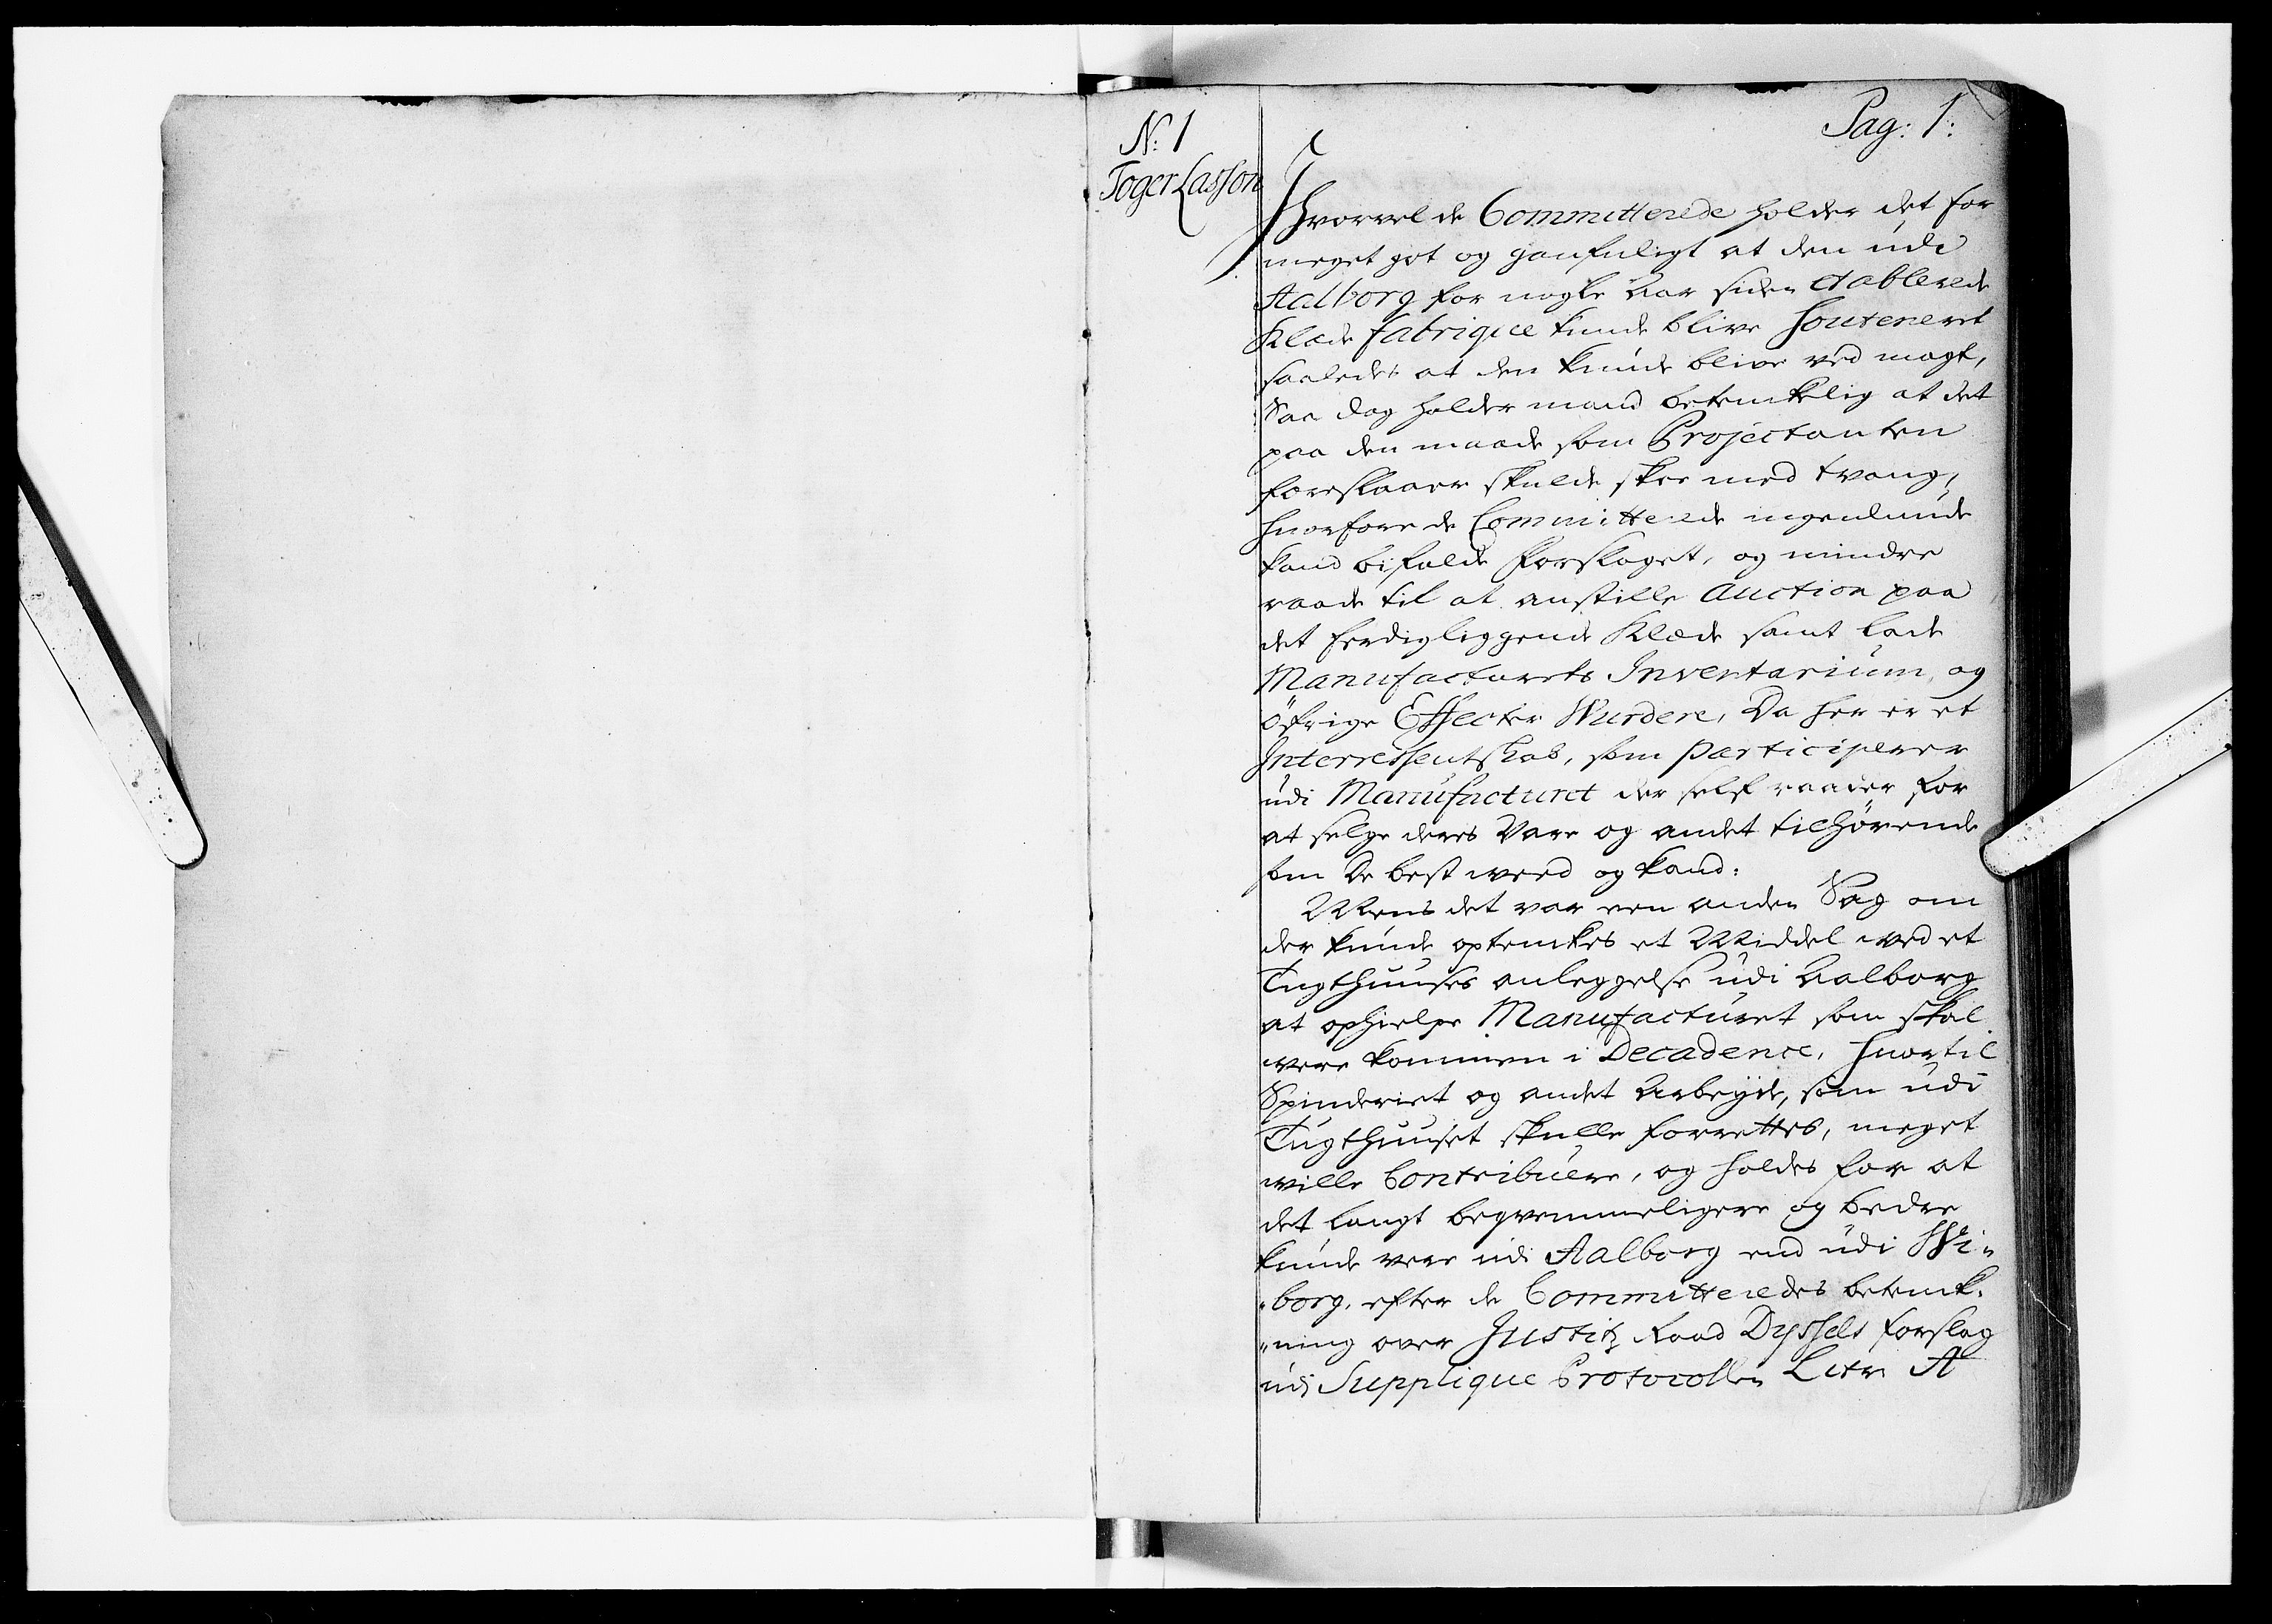 Pag: 1:
N: 1
Toger Lasson
Ihvorvel de Committerede holder det for
meget got og gaufnligt at den udi
Aalborg for nogle Aar siden etablerede
Klæde fabrique kunde blive souteneret
saaledes at den kunde blive ved magt,
Saa dog holder mand betenkelig at det
paa den maade som Projectanten
foreslaaer skulde skee med tvang,
hvorfore de Committerede ingenlunde
kand bifalde forslaget, og mindre
raade til at anstille Auction paa
det ferdigliggende Klæde samt lade
Manufacturets Inventarium, og
öfrige Effecter Wurdere, Da her er et
Interressentskab, som participerer
udi Manufacturet der self raader for
at selge deres Vare og andet tilhørende
som De best weed og kand:
Mens det var een anden Sag om
der kunde optenkes et Middel ved et
Tugthuuses anleggelse udi Aalborg
at ophielpe Manufacturet som skal
være kommen i Decadence, hvortil
Spinderiet og andet Arbeyde, som udi
Tugthuuset skulle forrettes, meget
wille Contribuere, og holdes for at
det langt beqvemmeligere og bedre
kunde være udi Aalborg end udi Wi-
borg. efter de Committeredes betenk-
ning over Justitz Raad Dyssels forslag
udi Supplique Protocollen Litr A